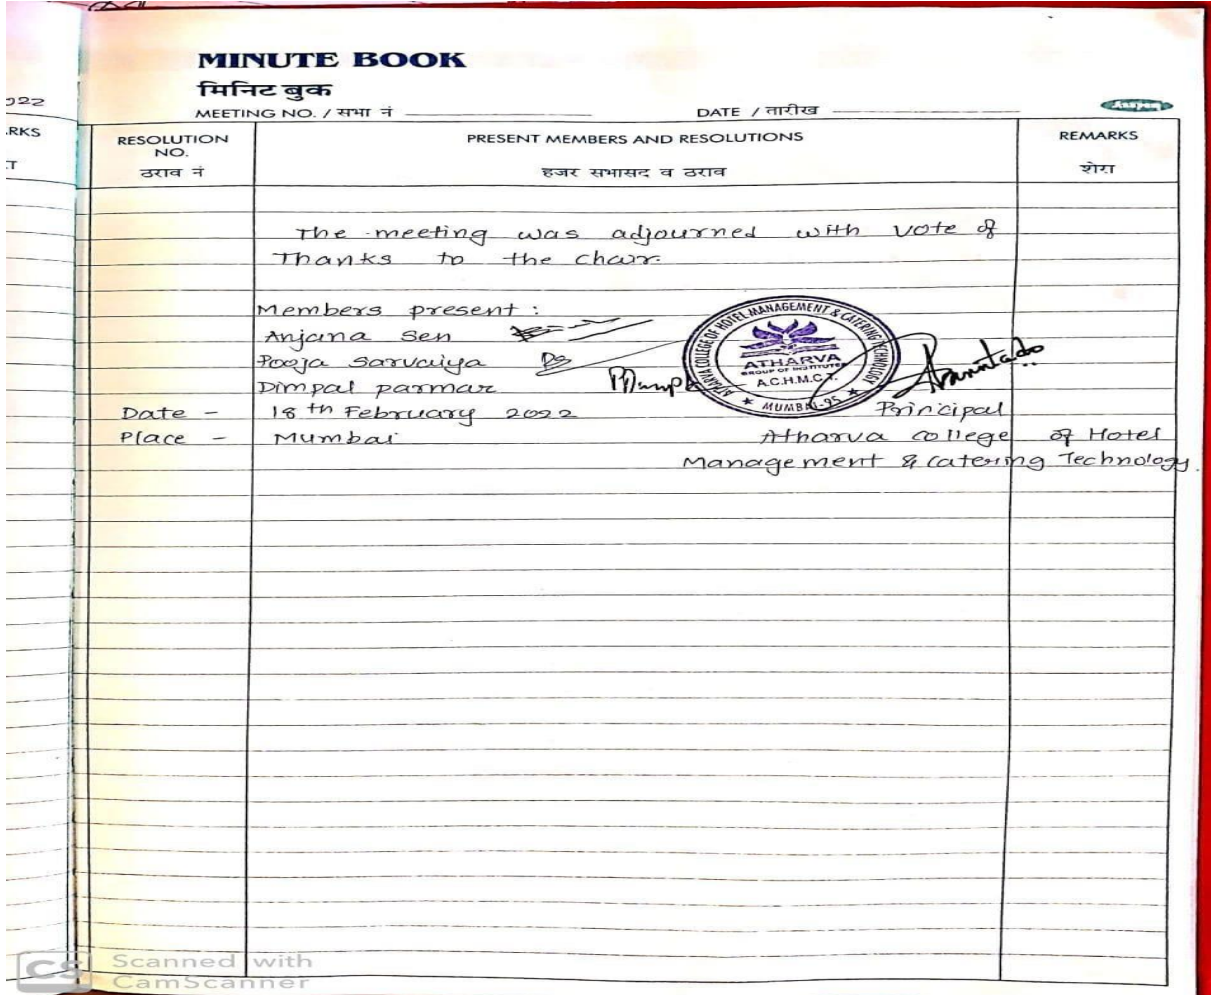 MINUTE BOOK
मिनिट बुक
MEETING NO. / सभा नं
DATE / तारीख
022
RKS
RESOLUTION NO.
ठराव नं
PRESENT MEMBERS AND RESOLUTIONS
हजर सभासद व ठराव
REMARKS
शेरा
The meeting was adjourned with vote of
Thanks to the chair.
Members present :
Anjana Sen
Pooja Sarvaiya
Dimpal parmar
ATHARVA COLLEGE OF HOTEL MANAGEMENT & CATERING TECHNOLOGY
ATHARVA
GROUP OF INSTITUTES
A.C.H.M.C.T.
★ MUMBAI-95 ★
Date - 18th February 2022
Principal
Place - Mumbai
Atharva college of Hotel
Management & catering Technology.
CS Scanned with
CamScanner